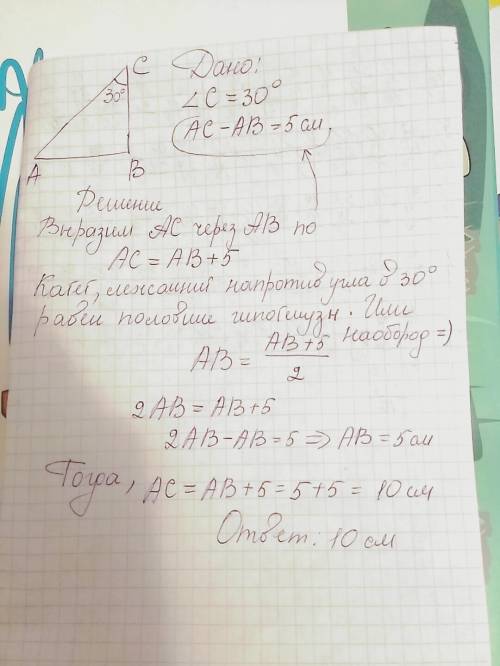 C
30°
A
B
Дано:
∠C = 30°
AC - AB = 5 см.
Решение
Выразим AC через AB по
AC = AB + 5
Катет, лежащий напротив угла в 30°
равен половине гипотенузы. Или
наоборот =)
AB = AB + 5 / 2
2AB = AB + 5
2AB - AB = 5 ⇒ AB = 5 см
Тогда, AC = AB + 5 = 5 + 5 = 10 см
Ответ: 10 см